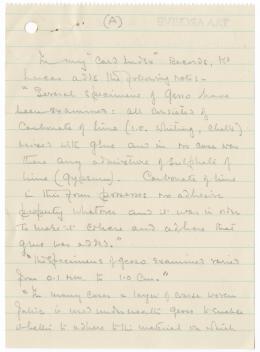 (A)
In my "Card Index" Records, Mr
Lucas adds the following notes -
"Several specimens of Gesso have
been examined: all consisted of
Carbonate of lime (i.e. whiting, chalk)
mixed with glue and in no case was
there any admixture of Sulphate of
lime (gypsum). Carbonate of lime
in this form possesses no adhesive
property whatever and it was in order
to make it cohere and adhere that
glue was added."
"The specimens of gesso examined varied
from 0.1 mm to 1.0 cm."
"In many cases a layer of coarse woven
fabric is used underneath gesso to enable
it to adhere to the material on which